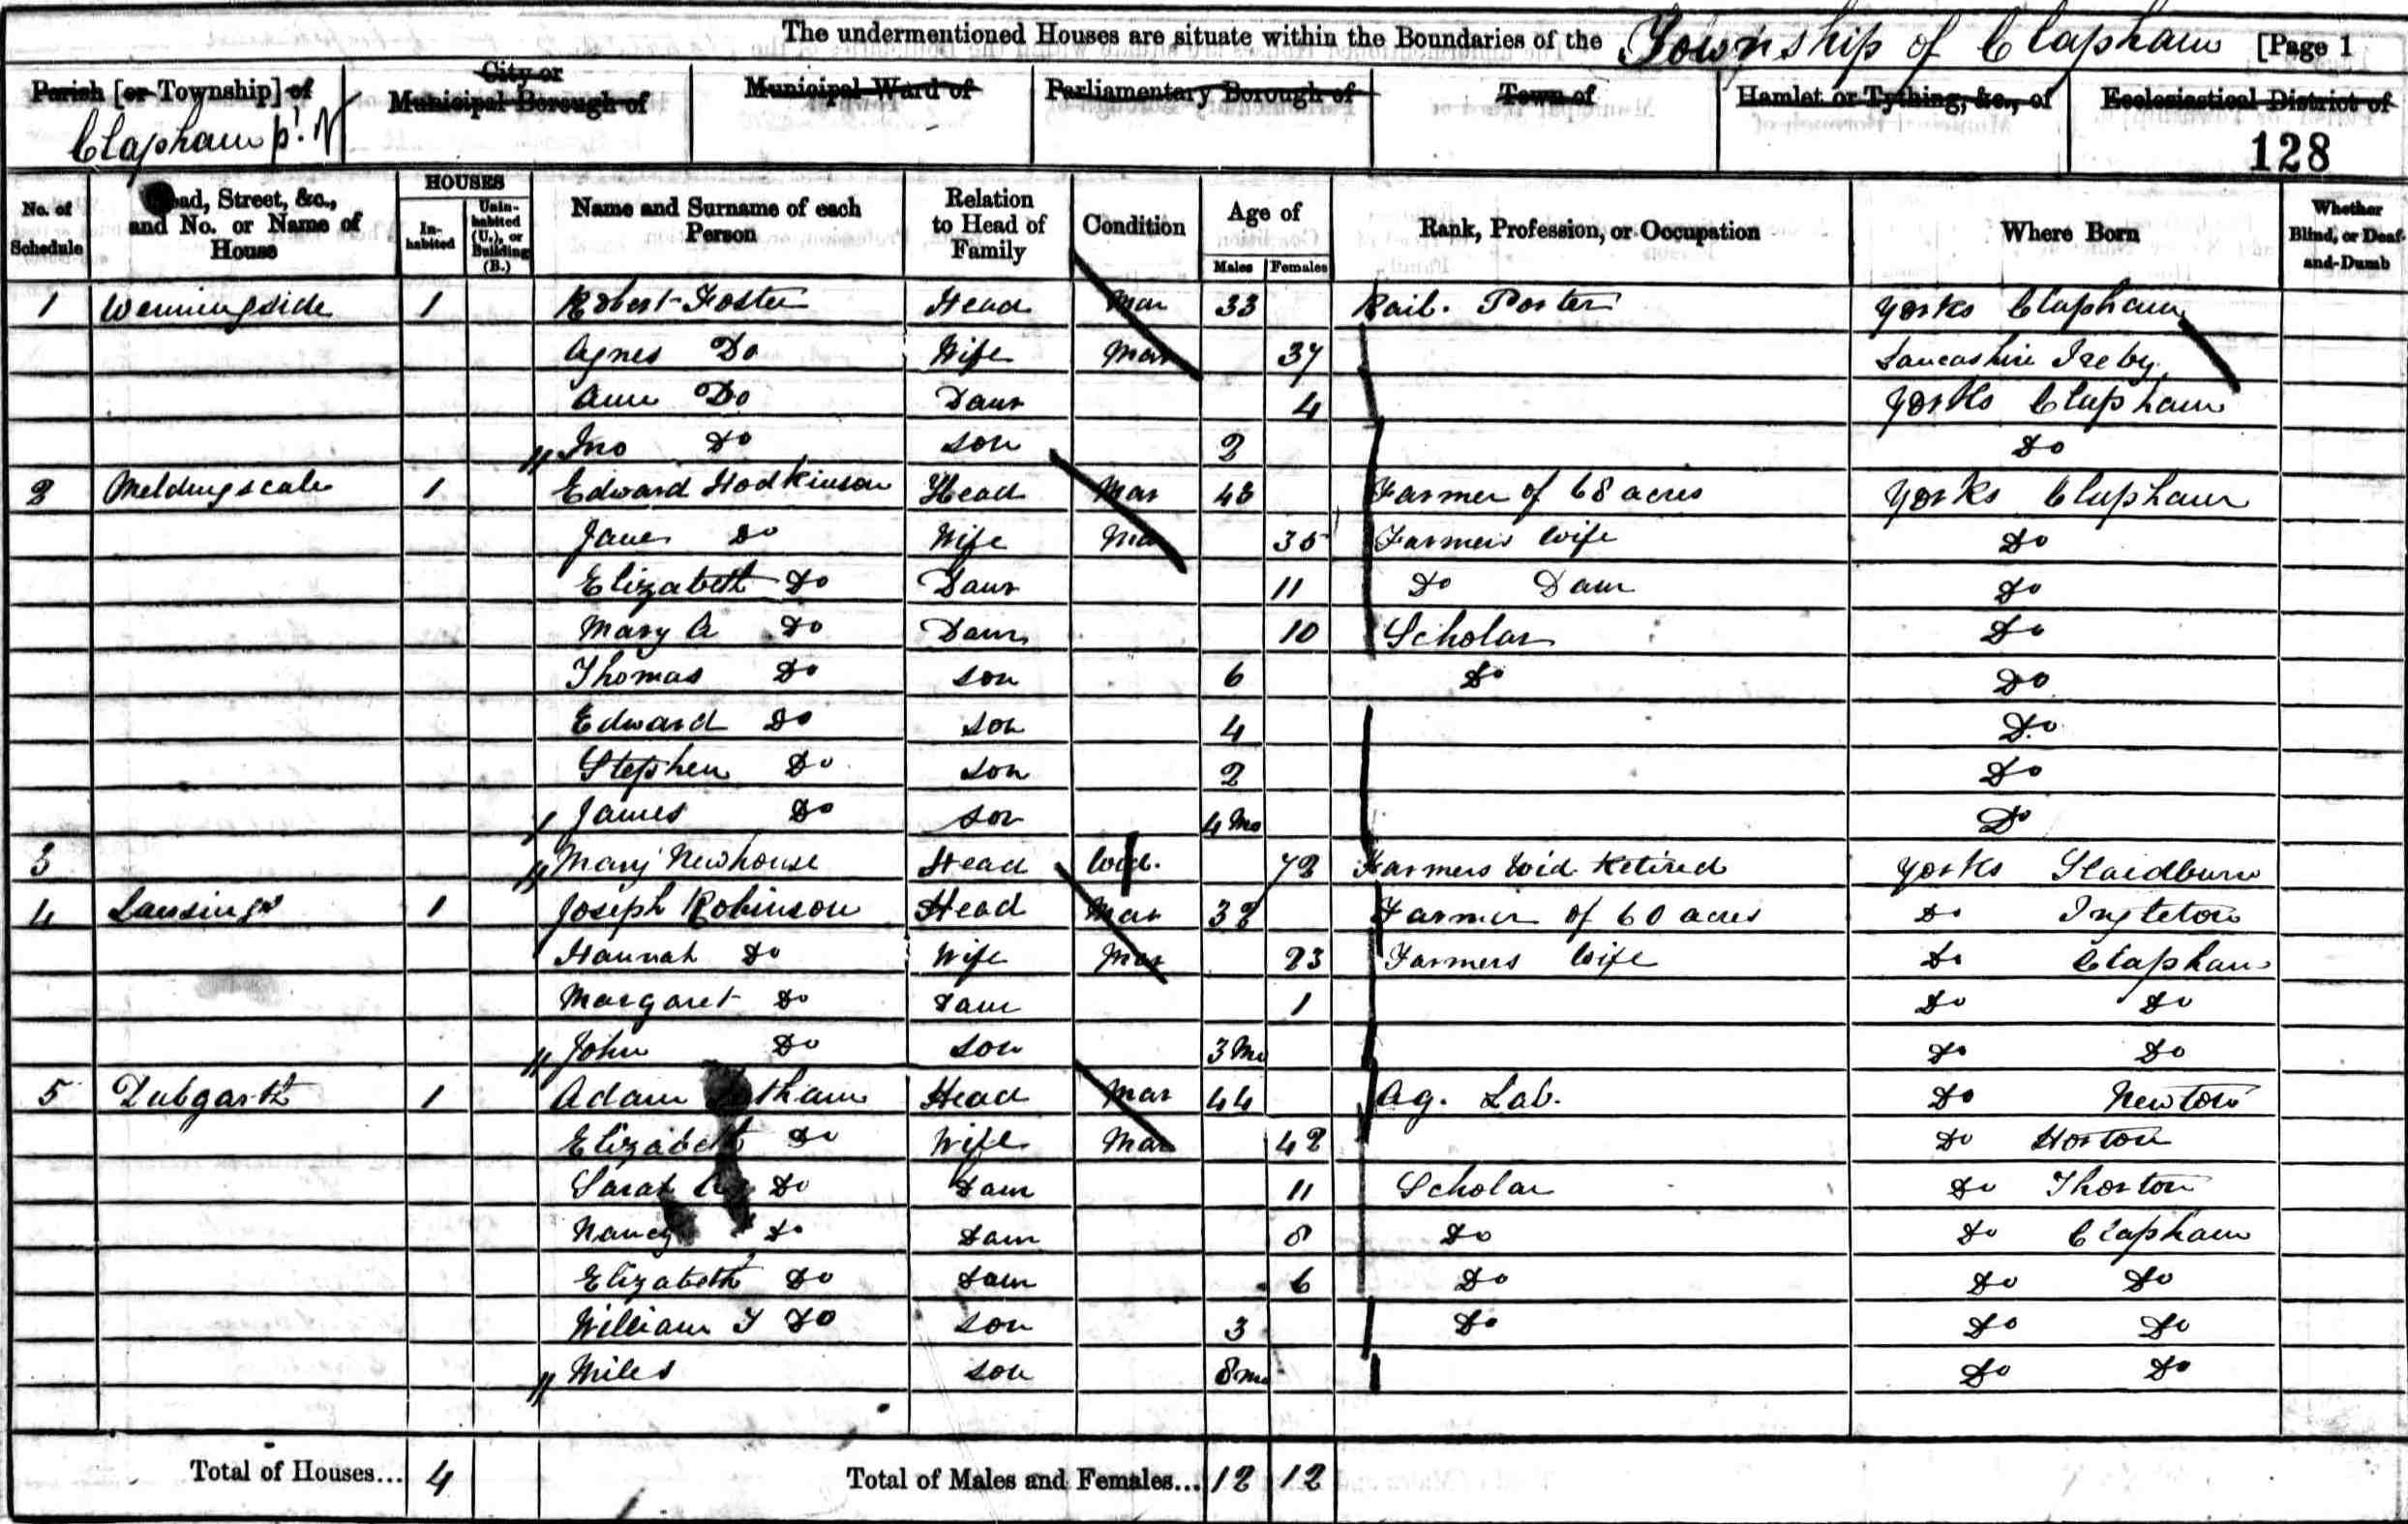 The undermentioned Houses are situate within the Boundaries of the Township of Clapham [Page 1
Parish [or Township] of City or Municipal Borough of Municipal Ward of Parliamentary Borough of Town of Hamlet or Tything, &c., of Ecclesiastical District of
Clapham pt.
128
No. of Schedule Road, Street, &c., and No. or Name of House HOUSES Inhabited Uninhabited (U.), or Building (B.) Name and Surname of each Person Relation to Head of Family Condition Age of Males Females Rank, Profession, or Occupation Where Born Whether Blind, or Deaf-and-Dumb
1 Wenningside 1 Robert Foster Head Mar 33 Rail. Porter Yorks Clapham
Agnes Do Wife Mar 37 Lancashire Ireby
Ann Do Daur 4 Yorks Clapham
Jno Do Son 2 Do
2 Meldingscale 1 Edward Hodkinson Head Mar 43 Farmer of 68 acres Yorks Clapham
Jane Do Wife Mar 35 Farmers Wife Do
Elizabeth Do Daur 11 Do Daur Do
Mary A Do Daur 10 Scholar Do
Thomas Do Son 6 Do Do
Edward Do Son 4 Do
Stephen Do Son 2 Do
James Do Son 4 Mo Do
3 Mary Newhouse Head Wid. 72 Farmers Wid Retired Yorks Slaidburn
4 1 Joseph Robinson Head Mar 32 Farmer of 60 acres Do Ingleton
Hannah Do Wife Mar 23 Farmers Wife Do Clapham
Margaret Do Daur 1 Do Do
John Do Son 3 Mo Do Do
5 Dubgarth 1 Adam Head Mar 44 Ag. Lab. Do Newton
Elizabeth Do Wife Mar 42 Do Horton
Sarah Do Daur 11 Scholar Do Thorton
Nancy Do Daur 8 Do Do Clapham
Elizabeth Do Daur 6 Do Do Do
William T Do Son 3 Do Do Do
Miles Son 8 mo Do Do
Total of Houses... 4 Total of Males and Females... 12 12